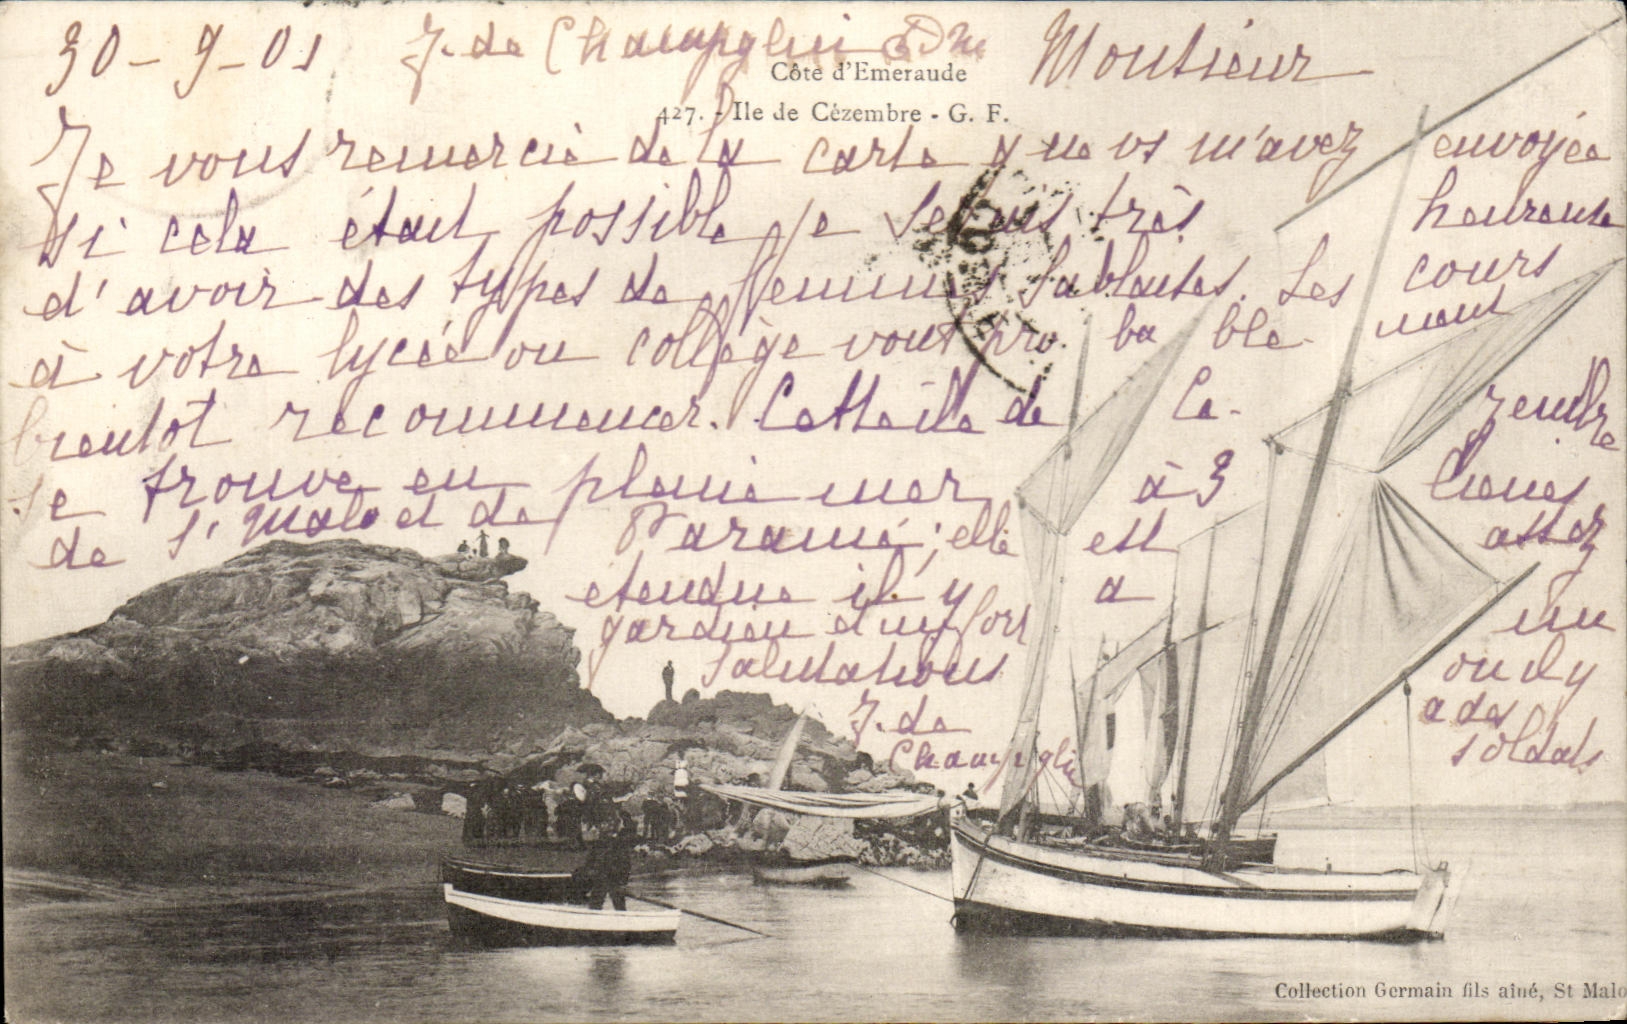 30-9-01 J. de Champglin Monsieur
Côte d'Emeraude
427. - Ile de Cézembre - G. F.
Je vous remercie de la carte que vs m'avez envoyée
si cela était possible je serais très heureuse
d'avoir des types de femmes Sablaises. Les cours
à votre lycée ou collège vont probablement
bientot recommencer. Cette île de Cezembre
se trouve en pleine mer à 3 lieues
de St Malo et de Paramé; elle est assez
étendue il y a un
gardien d'un fort ou il y
Salutations a des
J. de soldats
Champglin
Collection Germain fils aîné, St Malo